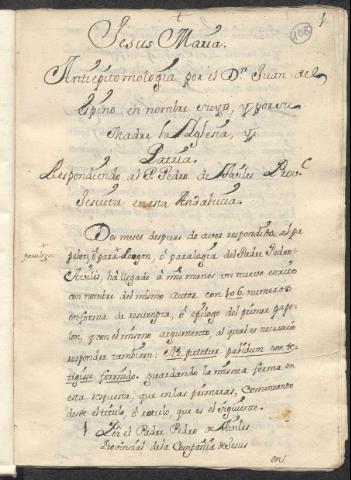 †
1
106
Jesus Maria.
Antiepitomologia por el Dr. Juan del
Espino en nombre suyo, y por su
Madre la Yglesia, y
Patria.
Respondiendo al P. Pedro de Aviles Provl.
Jesuita en esta Andalucia.
Dos meses despues de aver respondido al pa
pelon, ó para , ó paralogia del Padre Pedro
Aviles, há llegado á mis manos un nuevo escrito
con nombre del mismo autor con 106 numeros
en forma de resumpta, ó epilogo del primer pape-
lon, y con el mismo argumento, al qual es necesario
responder tambien: Ne putetur pallidum non te-
tigisse formido. guardando la misma forma en
esta respuesta, que en las primeras, comenzando
desde el titulo, ó rotulo, que es el siguiente.
Por el Padre Pedro de Aviles
Provincial de la Compañia de Jesus
en